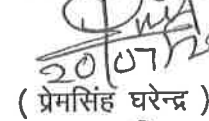 20/07/20
( प्रेमसिंह घरेन्द्र )